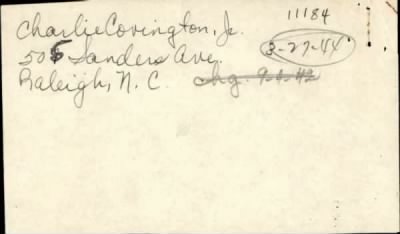 11184
Charlie Covington, Jr.
3-27-44
505 Sanders Ave.
Raleigh, N. C. chg. 9-2-42